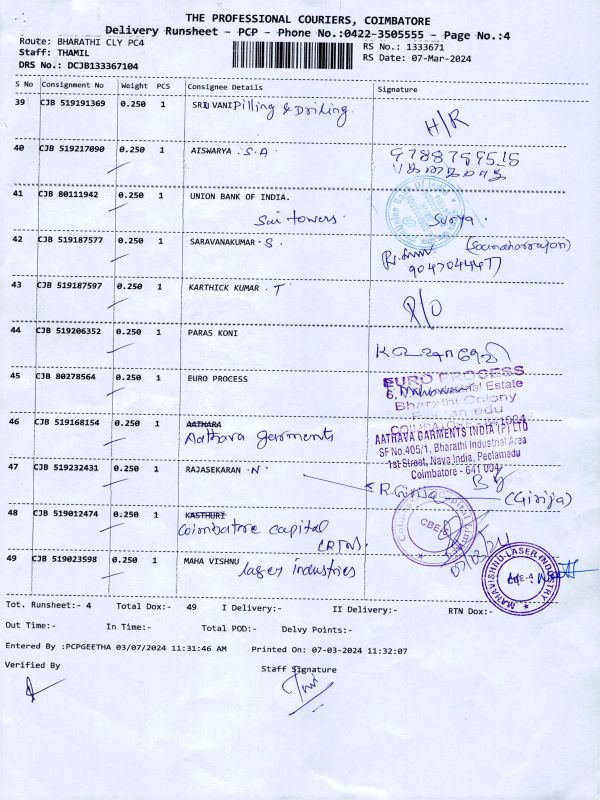 THE PROFESSIONAL COURIERS, COIMBATORE
Delivery Runsheet - PCP - Phone No.:0422-3505555 - Page No.:4
Route: BHARATHI CLY PC4
RS No.: 1333671
Staff: THAMIL
RS Date: 07-Mar-2024
DRS No.: DCJB133367104
S No Consignment No Weight PCS Consignee Details Signature
39 CJB 519191369 0.250 1 VANI Dilling & Driling H/R
40 CJB 519217090 0.250 1 AISWARYA . S.A
41 CJB 80111942 0.250 1 UNION BANK OF INDIA.
Sai towers. Surya.
42 CJB 519187577 0.250 1 SARAVANAKUMAR . S. (Soundharrajan)
43 CJB 519187597 0.250 1 KARTHICK KUMAR . T P/O
44 CJB 519206352 0.250 1 PARAS KONI
45 CJB 80278564 0.250 1 EURO PROCESS
EURO PROCESS
6, Estate
Bharathi Colony
46 CJB 519168154 0.250 1 AATHARA
Aathava garments
AATHAVA GARMENTS INDIA (P) LTD
SF No.405/1, Bharathi Industrial Area
1st Street, Nava India, Peelamedu
Coimbatore - 641 004
47 CJB 519232431 0.250 1 RAJASEKARAN . N . R.Girija By (Girija)
48 CJB 519012474 0.250 1 KASTHURI
Coimbatore capital
CBE-4
49 CJB 519023598 0.250 1 MAHA VISHNU
laser industries
MAHAVISHNU LASER INDUSTRY
Tot. Runsheet:- 4 Total Dox:- 49 I Delivery:- II Delivery:- RTN Dox:-
Out Time:- In Time:- Total POD:- Delvy Points:-
Entered By :PCPGEETHA 03/07/2024 11:31:46 AM Printed On: 07-03-2024 11:32:07
Verified By Staff Signature